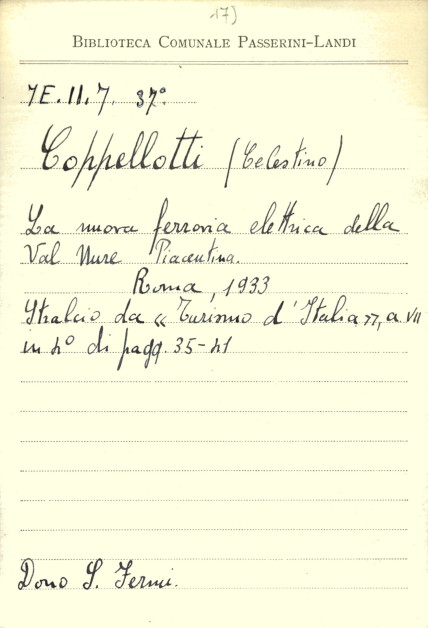 17)
BIBLIOTECA COMUNALE PASSERINI-LANDI
7E.II.7. 37º
Coppellotti (Celestino)
La nuova ferrovia elettrica della
Val Nure Piacentina.
Roma, 1933
Stralcio da "Turismo d'Italia", a. VII
in 4º di pagg. 35-41
Dono S. Fermi.